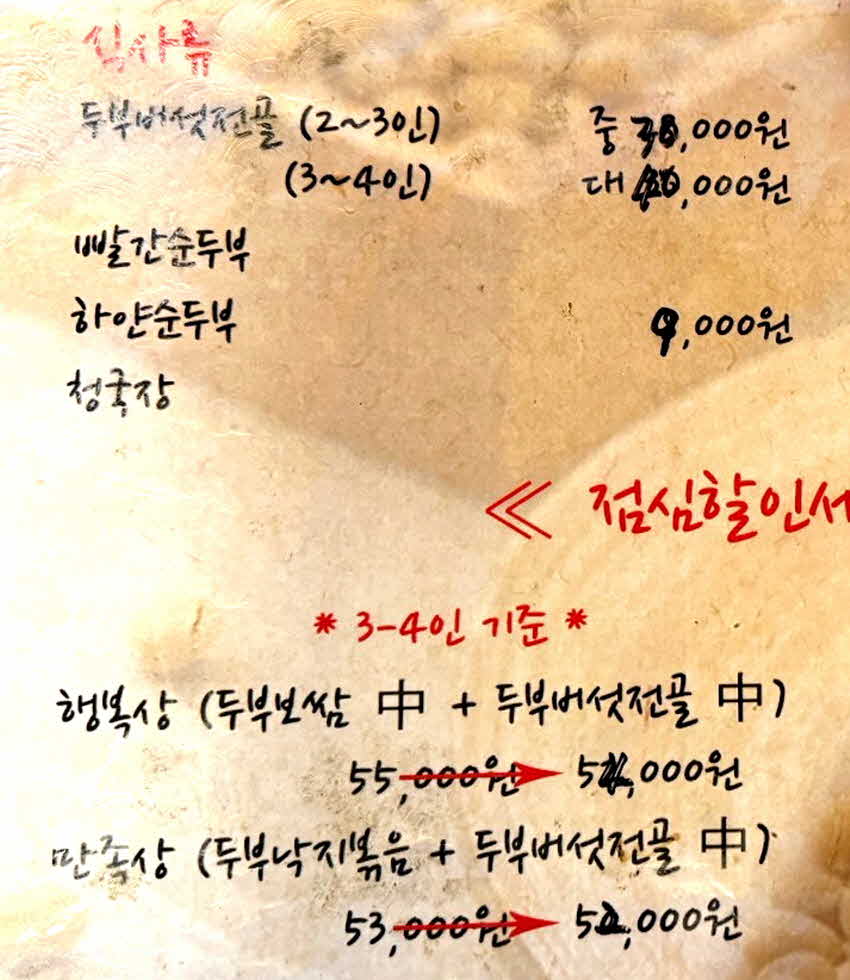 식사류
두부버섯전골 (2~3인) 중 ,000원
(3~4인) 대 ,000원
빨간순두부
하얀순두부 9,000원
청국장
≪ 점심할인서
* 3-4인 기준 *
행복상 (두부보쌈 中 + 두부버섯전골 中)
55,000원 → ,000원
만족상 (두부낙지볶음 + 두부버섯전골 中)
53,000원 → ,000원